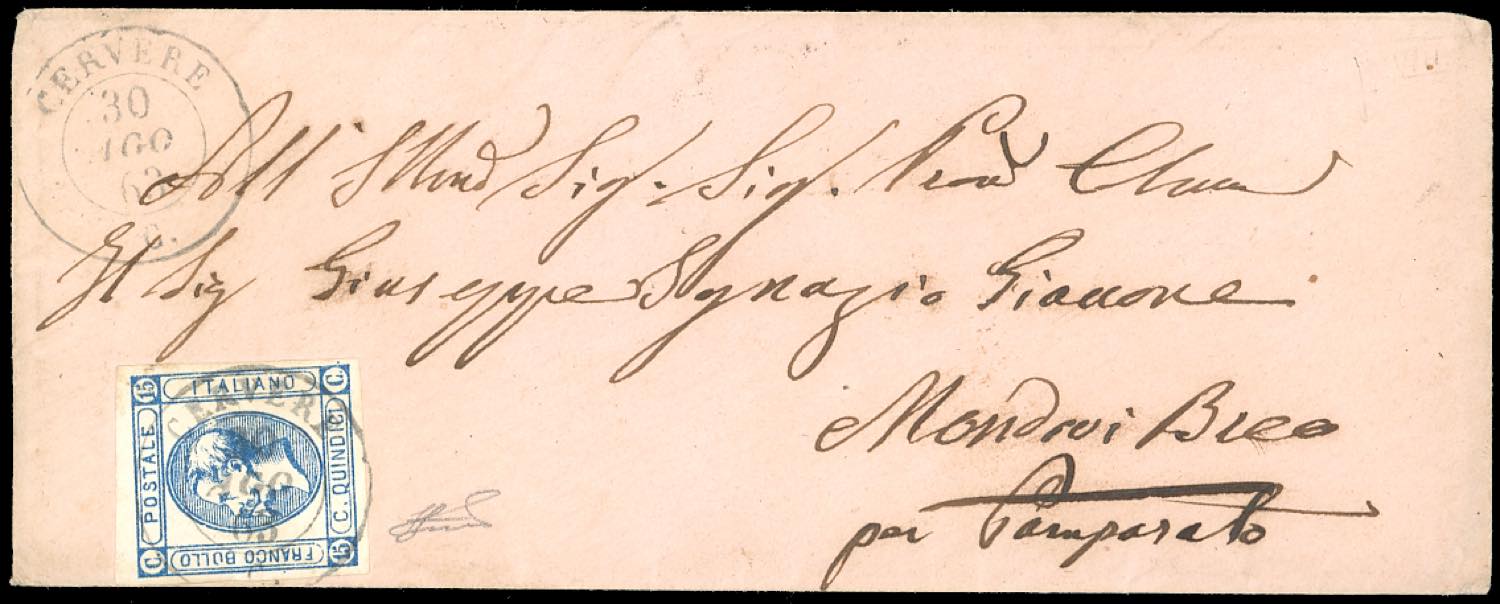 CERVERE
30
AGO
63
C.
All' Illmo Sig. Sig. Pron Clmo
Il Sig Giuseppe Ignazio Gianone
Mondovi Breo
per Pamparato
ITALIANO
15
C.
POSTALE
C. QUINDICI
C.
15
FRANCO BOLLO
CERVERE
AGO
63